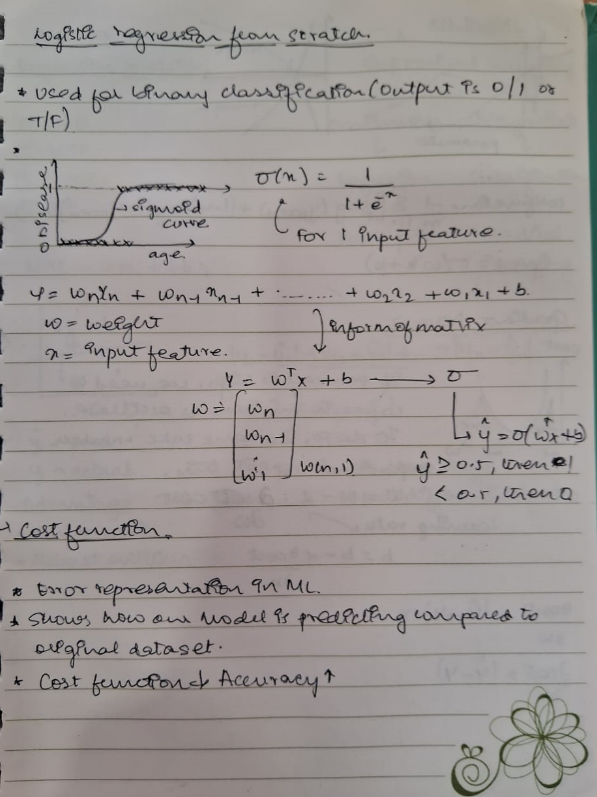 Logistic regression from scratch.
* Used for binary classification (Output is 0/1 or
T/F)
0 Disease 1
sigmoid
curve
age
σ(x) = 1 / 1 + e^-x
for 1 input feature.
Y = wnxn + wn-1 xn-1 + ........ + w2x2 + w1x1 + b.
w = weight
x = input feature.
in form of matrix
Y = wᵀx + b → σ
w = [wn
wn-1
w1] w(n,1)
ŷ = σ(wᵀx+b)
ŷ ≥ 0.5, then 1
< 0.5, then 0
→ Cost function.
* Error representation in ML.
* Shows how our model is predicting compared to
original dataset.
* Cost function ↓ Accuracy ↑